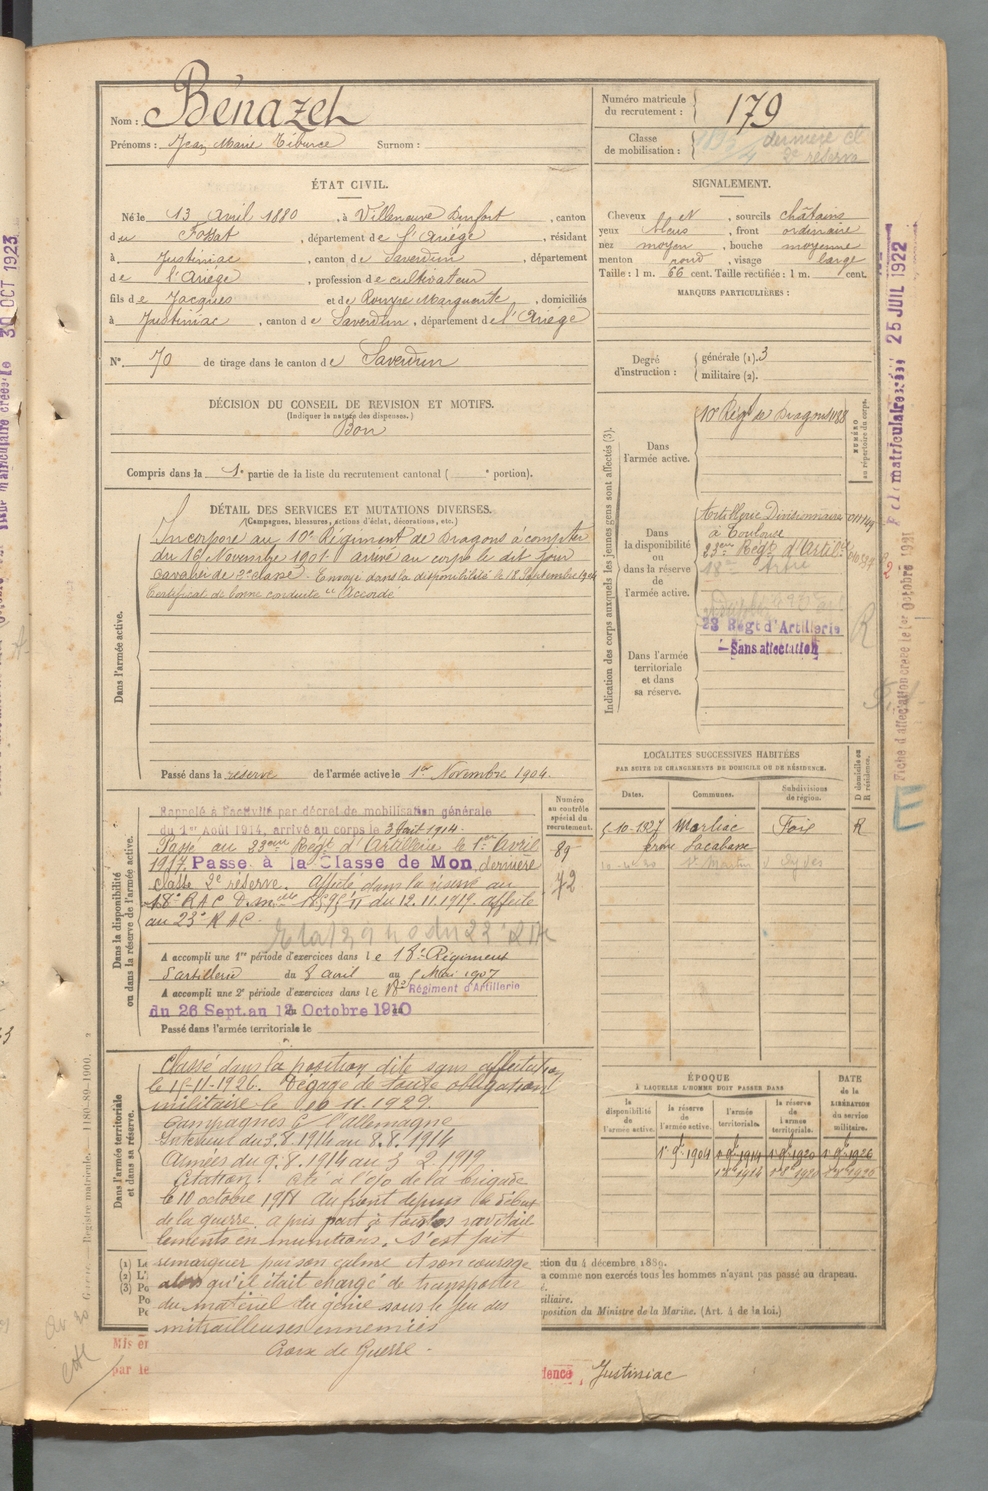 Nom : Bénazet
Prénoms : Jean Marie Tiburce Surnom :
Numéro matricule du recrutement : 179
Classe de mobilisation : dernière cl
2e réserve
ÉTAT CIVIL.
Né le 13 Avril 1880, à Villeneuve Durfort, canton
du Fossat, département de l'Ariége, résidant
à Justiniac, canton de Saverdun, département
de l'Ariége, profession de cultivateur
fils de Jacques et de Marguerite, domiciliés
à Justiniac, canton de Saverdun, département de l'Ariége
N° 70 de tirage dans le canton de Saverdun
DÉCISION DU CONSEIL DE REVISION ET MOTIFS.
(Indiquer la nature des dispenses.)
Bon
Compris dans la 1e partie de la liste du recrutement cantonal ( e portion).
SIGNALEMENT.
Cheveux et, sourcils châtains
yeux bleus, front ordinaire
nez moyen, bouche moyenne
menton rond, visage large
Taille : 1 m. 66 cent. Taille rectifiée : 1 m. cent.
MARQUES PARTICULIÈRES :
Degré d'instruction : générale (1). 3
militaire (2).
Indication des corps auxquels les jeunes gens sont affectés (3).
NUMÉRO au répertoire du corps.
Dans l'armée active.
10e Régt de Dragons 1188
Dans la disponibilité ou dans la réserve de l'armée active.
Artillerie Divisionnaire
à Toulouse
23ème Régt d'Artille
18e
Dans l'armée territoriale et dans sa réserve.
23 Régt d'Artillerie
Sans affectation
DÉTAIL DES SERVICES ET MUTATIONS DIVERSES.
(Campagnes, blessures, actions d'éclat, décorations, etc.)
Dans l'armée active.
Incorporé au 10e Régiment de Dragons à compter
du 16 Novembre 1901. arrivé au corps le dit jour
Cavalier de 2e classe. Envoyé dans la disponibilité le 18 Septembre 1904
Certificat de bonne conduite "Accordé"
Passé dans la réserve de l'armée active le 1er Novembre 1904.
Dans la disponibilité ou dans la réserve de l'armée active.
Rappelé à l'activité par décret de mobilisation générale
du 1er Août 1914, arrivé au corps le 3 Août 1914.
Passé au 23ème Régt d'Artillerie le 1er Avril
1917. Passé à la Classe de Mon dernière
classe 2e réserve. Affecté dans la réserve au
18e RAC du 12.11.1919. affecté
au 23e RAC.
Numéro au contrôle spécial du recrutement.
89
72
A accompli une 1re période d'exercices dans le 18e Régiment
d'artillerie du 8 avril au 5 Mai 1907
A accompli une 2e période d'exercices dans le Régiment d'Artillerie
du 26 Sept. au 12 Octobre 1910
Passé dans l'armée territoriale le
Dans l'armée territoriale et dans sa réserve.
Classé dans la position dite sans affectation
le 15-11-1926. Dégagé de toute obligation
militaire le 10.11.1929.
Campagnes C/ l'Allemagne
Intérieur du 3.8.1914 au 8.8.1914
Armées du 9.8.1914 au 3 2 1919
Citation : Cité à l'o/o de la brigade
le 10 octobre 1918 Au front depuis le début
de la guerre, a pris part à tous les ravitail
lements en munitions. S'est fait
remarquer par son calme et son courage
alors qu'il était chargé de transporter
du matériel du génie sous le feu des
mitrailleuses ennemies
Croix de Guerre.
LOCALITÉS SUCCESSIVES HABITÉES
PAR SUITE DE CHANGEMENTS DE DOMICILE OU DE RÉSIDENCE.
Dates. Communes. Subdivisions de région. D domicile ou R résidence.
5-10-1927 Marliac Foix R
Lacabane
St Martin
ÉPOQUE
À LAQUELLE L'HOMME DOIT PASSER DANS
la disponibilité de l'armée active.
la réserve de l'armée active.
l'armée territoriale.
la réserve de l'armée territoriale.
DATE de la LIBÉRATION du service militaire.
1er 9bre 1904 1er 9bre 1914 1er 9bre 1920 1er 9bre 1926
(1) Le
(2) L'i
(3) Po
Po
Po
ction du 4 décembre 1889.
a comme non exercés tous les hommes n'ayant pas passé au drapeau.
iliaire.
position du Ministre de la Marine. (Art. 4 de la loi.)
Mis en
par le
dence, Justiniac
25 JUIL 1922
Fiche d'affectation créée le 1er Octobre 1931
E
R
30 OCT 1923
Registre matricule. 1180-89-1900.